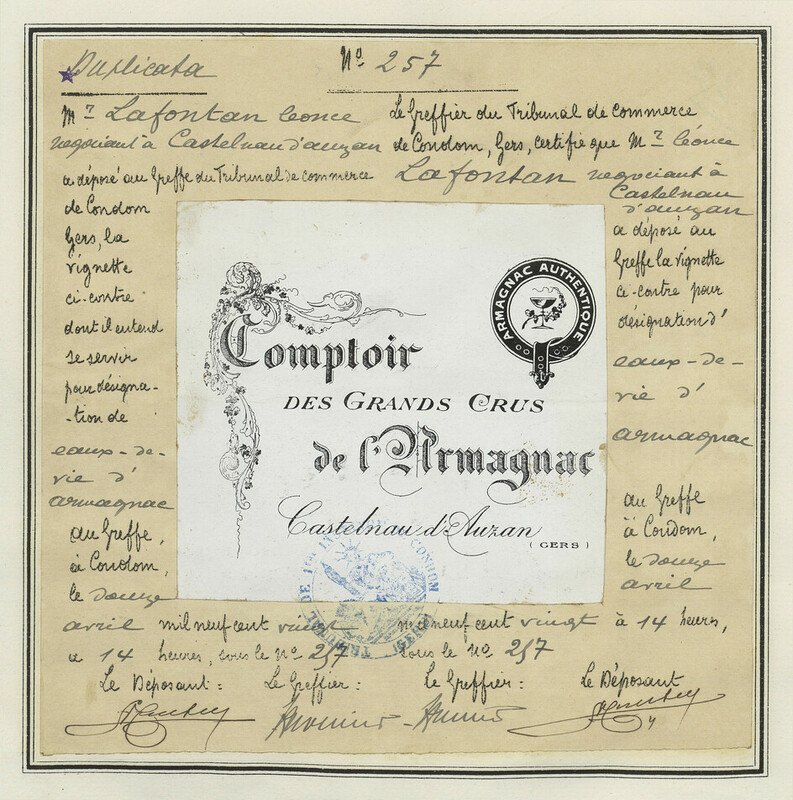 Duplicata
Nº 257
Mr Lafontan Léonce
négociant à Castelnau d'auzan
a déposé au Greffe du Tribunal de Commerce
de Condom
Gers, la
vignette
ci-contre
dont il entend
se servir
pour désigna-
-tion de
eaux-de-
vie d'
armagnac
au Greffe,
à Condom,
le douze
avril mil neuf cent vingt
à 14 heures, sous le Nº 257
Le Déposant :
Le Greffier :
Le Greffier du Tribunal de Commerce
de Condom, Gers, certifie que Mr Léonce
Lafontan négociant à
Castelnau
d'auzan
a déposé au
Greffe la vignette
ci-contre pour
désignation d'
eaux-de-
vie d'
armagnac
au Greffe
à Condom,
le douze
avril
mil neuf cent vingt à 14 heures,
sous le Nº 257
Le Greffier :
Le Déposant
ARMAGNAC AUTHENTIQUE
Comptoir
DES GRANDS CRUS
de l'Armagnac
Castelnau d'Auzan
(GERS)
TRIBUNAL DE CONDOM (GERS)